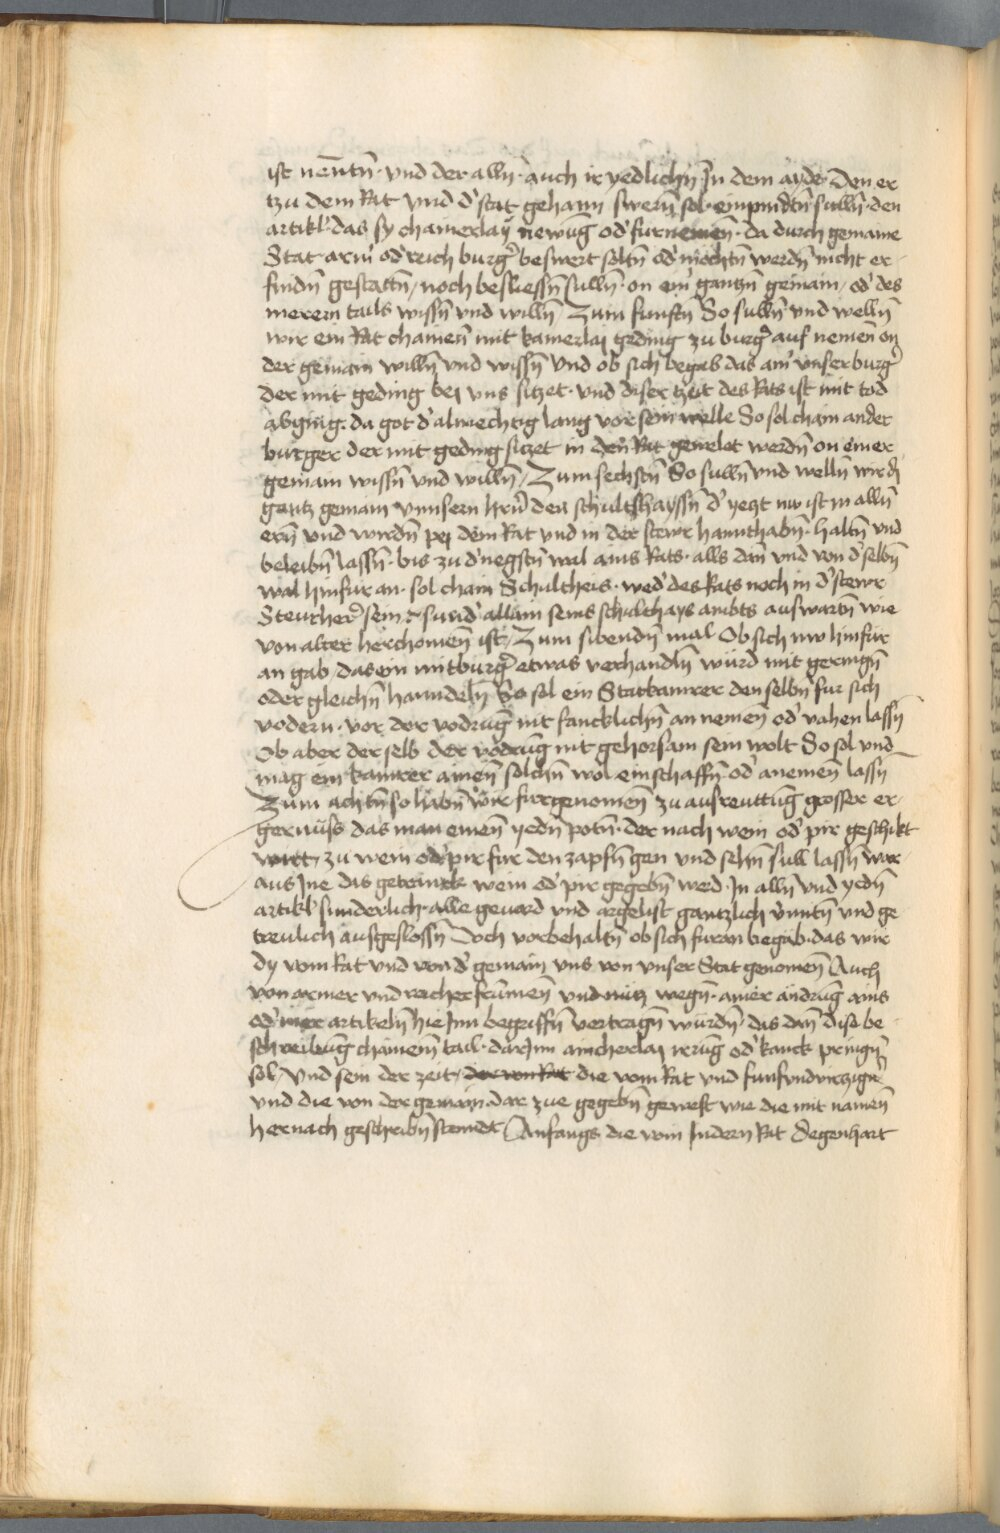 ist nēntn̄ · vnd der alln̄ · auch ir yedlichn̄ Jn dem ayde · Den er
tzu dem Rat vnd d' stat gehaim swern̄ sol · einpindtn̄ sulln̄ · den
artikl' das sy chainerlay newūg od' furnemen̄ · da durch gemaine
Stat arm̄ od' reich burg' beswert soltn̄ od' mochtn̄ werdn̄ nicht er-
findn̄ gestattn̄ / noch besliessn̄ sulln̄ · on ein' gantzn̄ gemain / od' des
merern tails wissn̄ vnd willn̄ Zum funftn̄ So sulln̄ vnd welln̄
wir ein Rat chainen̄ mit kainerlaj geding zu burg' auf nemen̄ on
der gemain willn̄ vnd wissn̄ Vnd ob sich begab das ain' vnser burg'
der mit geding bej vns sitzet · vnd diser tzeit des Rats ist mit tod
abging · da got d' almechtig lang vor sein welle So sol chain ander
burger der mit geding sitzet in den̄ Rat gewelet werdn̄ on einer
gemain wissn̄ vnd willn̄ / Zum sechstn̄ So sulln̄ vnd welln̄ wir dj
gantz gemain vnnsern hrn̄ den schultshayssn̄ d' yetzt nw ist in alln̄
ern̄ vnd wirdn̄ pej dem Rat vnd in der stewr hannthabn̄ · haltn̄ vnd
beleibn̄ lassn̄ · bis zu d' negstn̄ wal ains Rats · alls dan̄ vnd von d' selbn̄
wal hinfur an · sol chain Schultheis · wed' des Rats noch in d' stewr
Steurher' sein / sund' allain seins schulthays ambts auswartn̄ wie
von alter herchomen̄ ist / Zum sibendn̄ mal Ob sich nw hinfur
an gab / das ein mitburg' etwas verhandln̄ würd mit geringn̄
oder gleichn̄ hanndeln̄ So sol ein Statkamrer den selbn̄ fur sich
vodern · vor der vodrūg nit fancklichn̄ an nemen̄ od' vahen lassn̄
Ob aber der selb der vodrūg nit gehorsam sein wolt So sol vnd
mag ein kamrer ainen̄ solchn̄ wol einschaffn̄ od' anemen̄ lassn̄
Zum achtn̄ so habn̄ wir furgenomen̄ zu ausreuttūg grosser er-
gernüss das man einen̄ yedn̄ potn̄ · der nach wein od' pir geschikt
wirt / zu wein od' pir fur den zapfn̄ gen vnd sehn̄ sull lassn̄ wor-
aus Jne das getrannck wein od' pir gegebn̄ werd · Jn alln̄ vnd yedn̄
artikl' sunderlich · alle geuard vnd argelist gantzlich vermitn̄ vnd ge
treulich ausgeslossn̄ Doch vorbehaltn̄ ob sich furan begab · das wir
dy vom Rat vnd von d' gemain vns von vnser Stat genomen̄ Auch
von armer vnd reicher frumen̄ vnd nutz wegn̄ · ainer andrūg ains
od' mer artikeln̄ hie Jnn begriffn̄ vertragn̄ würdn̄ · das dan̄ dise be-
schreibūg chainem̄ tail · dar Jnn aincherlaj irrūg od' kranck pringn̄
sol / vnd sein der zeit / der von Rat die vom Rat vnd funfvndvirtzig'
vnd die von der gemain · dar zue gegebn̄ gewest wie die mit namen̄
hernach geschribn̄ stenndt Anfangs die vom Jndern Rat Degenhart